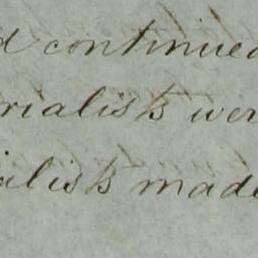 d continued
rialists wer
ialists made